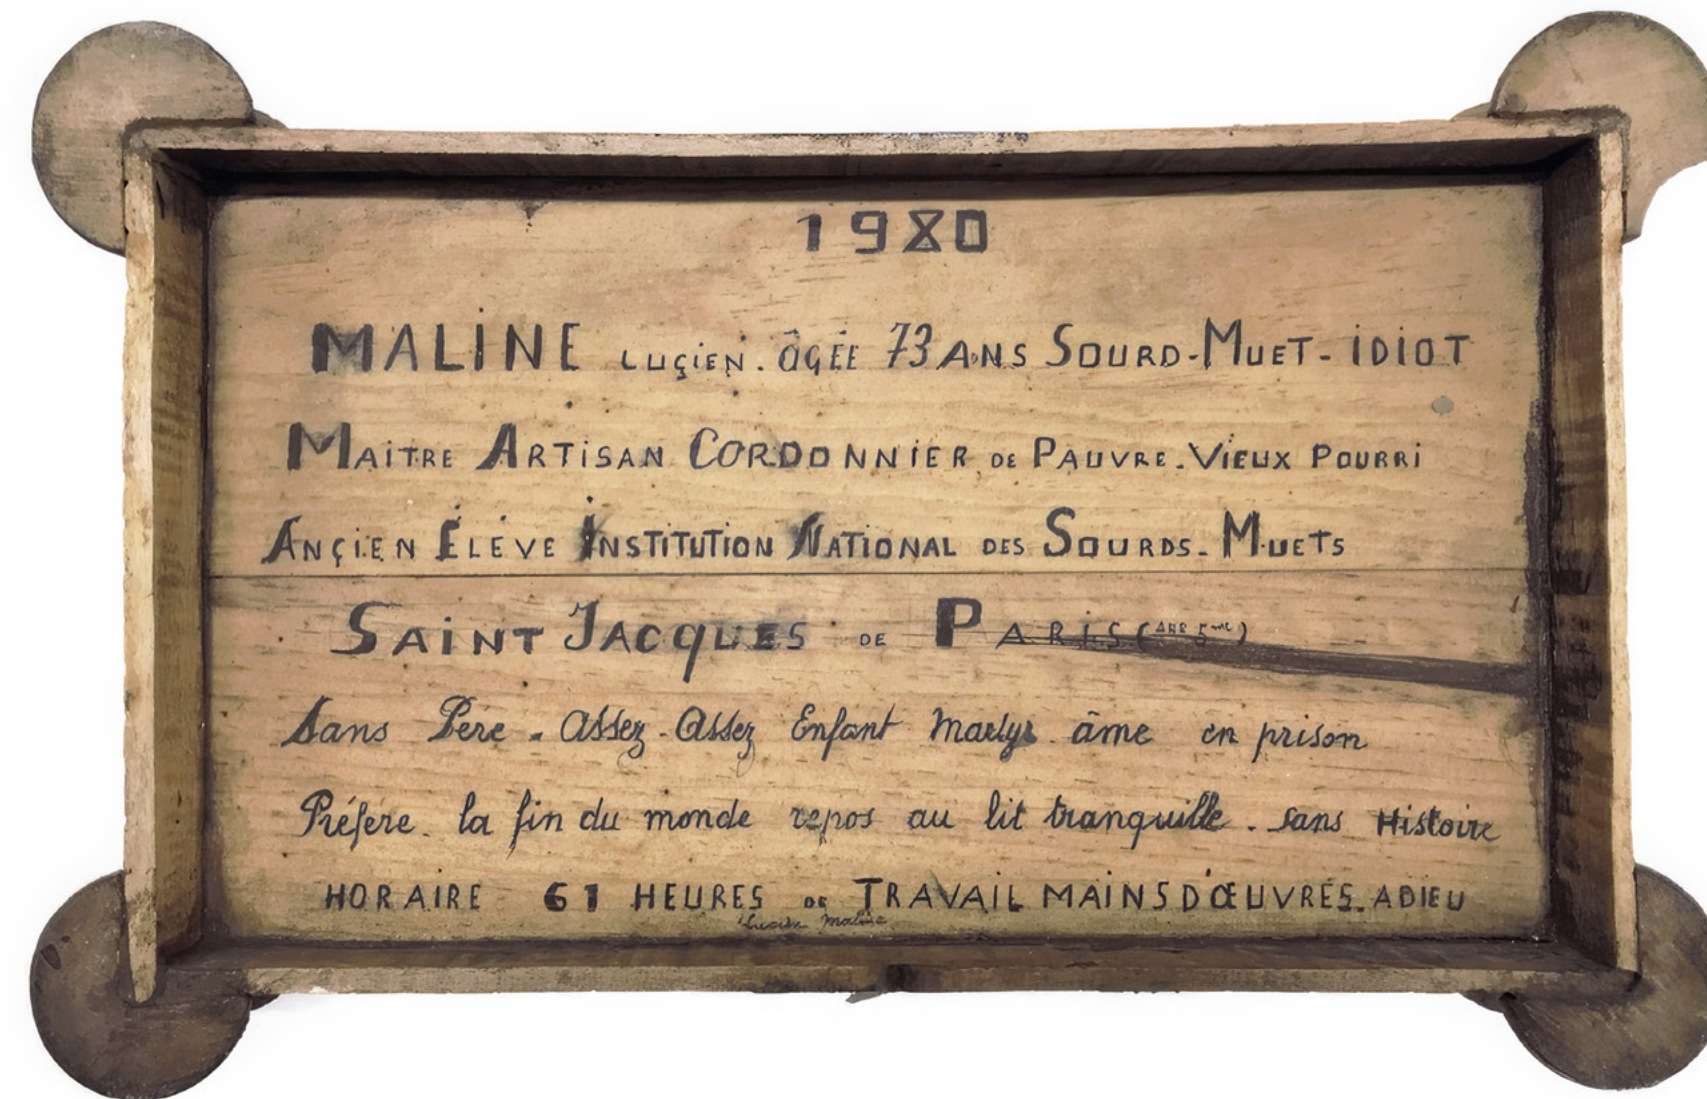 1980
MALINE LUÇIEN. ÂGÉE 73 ANS SOURD-MUET-IDIOT
MAITRE ARTISAN CORDONNIER DE PAUVRE. VIEUX POURRI
ANÇIEN ÉLÉVE INSTITUTION NATIONAL DES SOURDS-MUETS
SAINT JACQUES DE PARIS (ARR 5me)
Sans Pére. Assez. Assez Enfant Martyr âme en prison
Préfére. la fin du monde repos au lit tranquille. sans Histoire
HORAIRE 61 HEURES DE TRAVAIL MAINS D'ŒUVRES. ADIEU
Lucien Maline